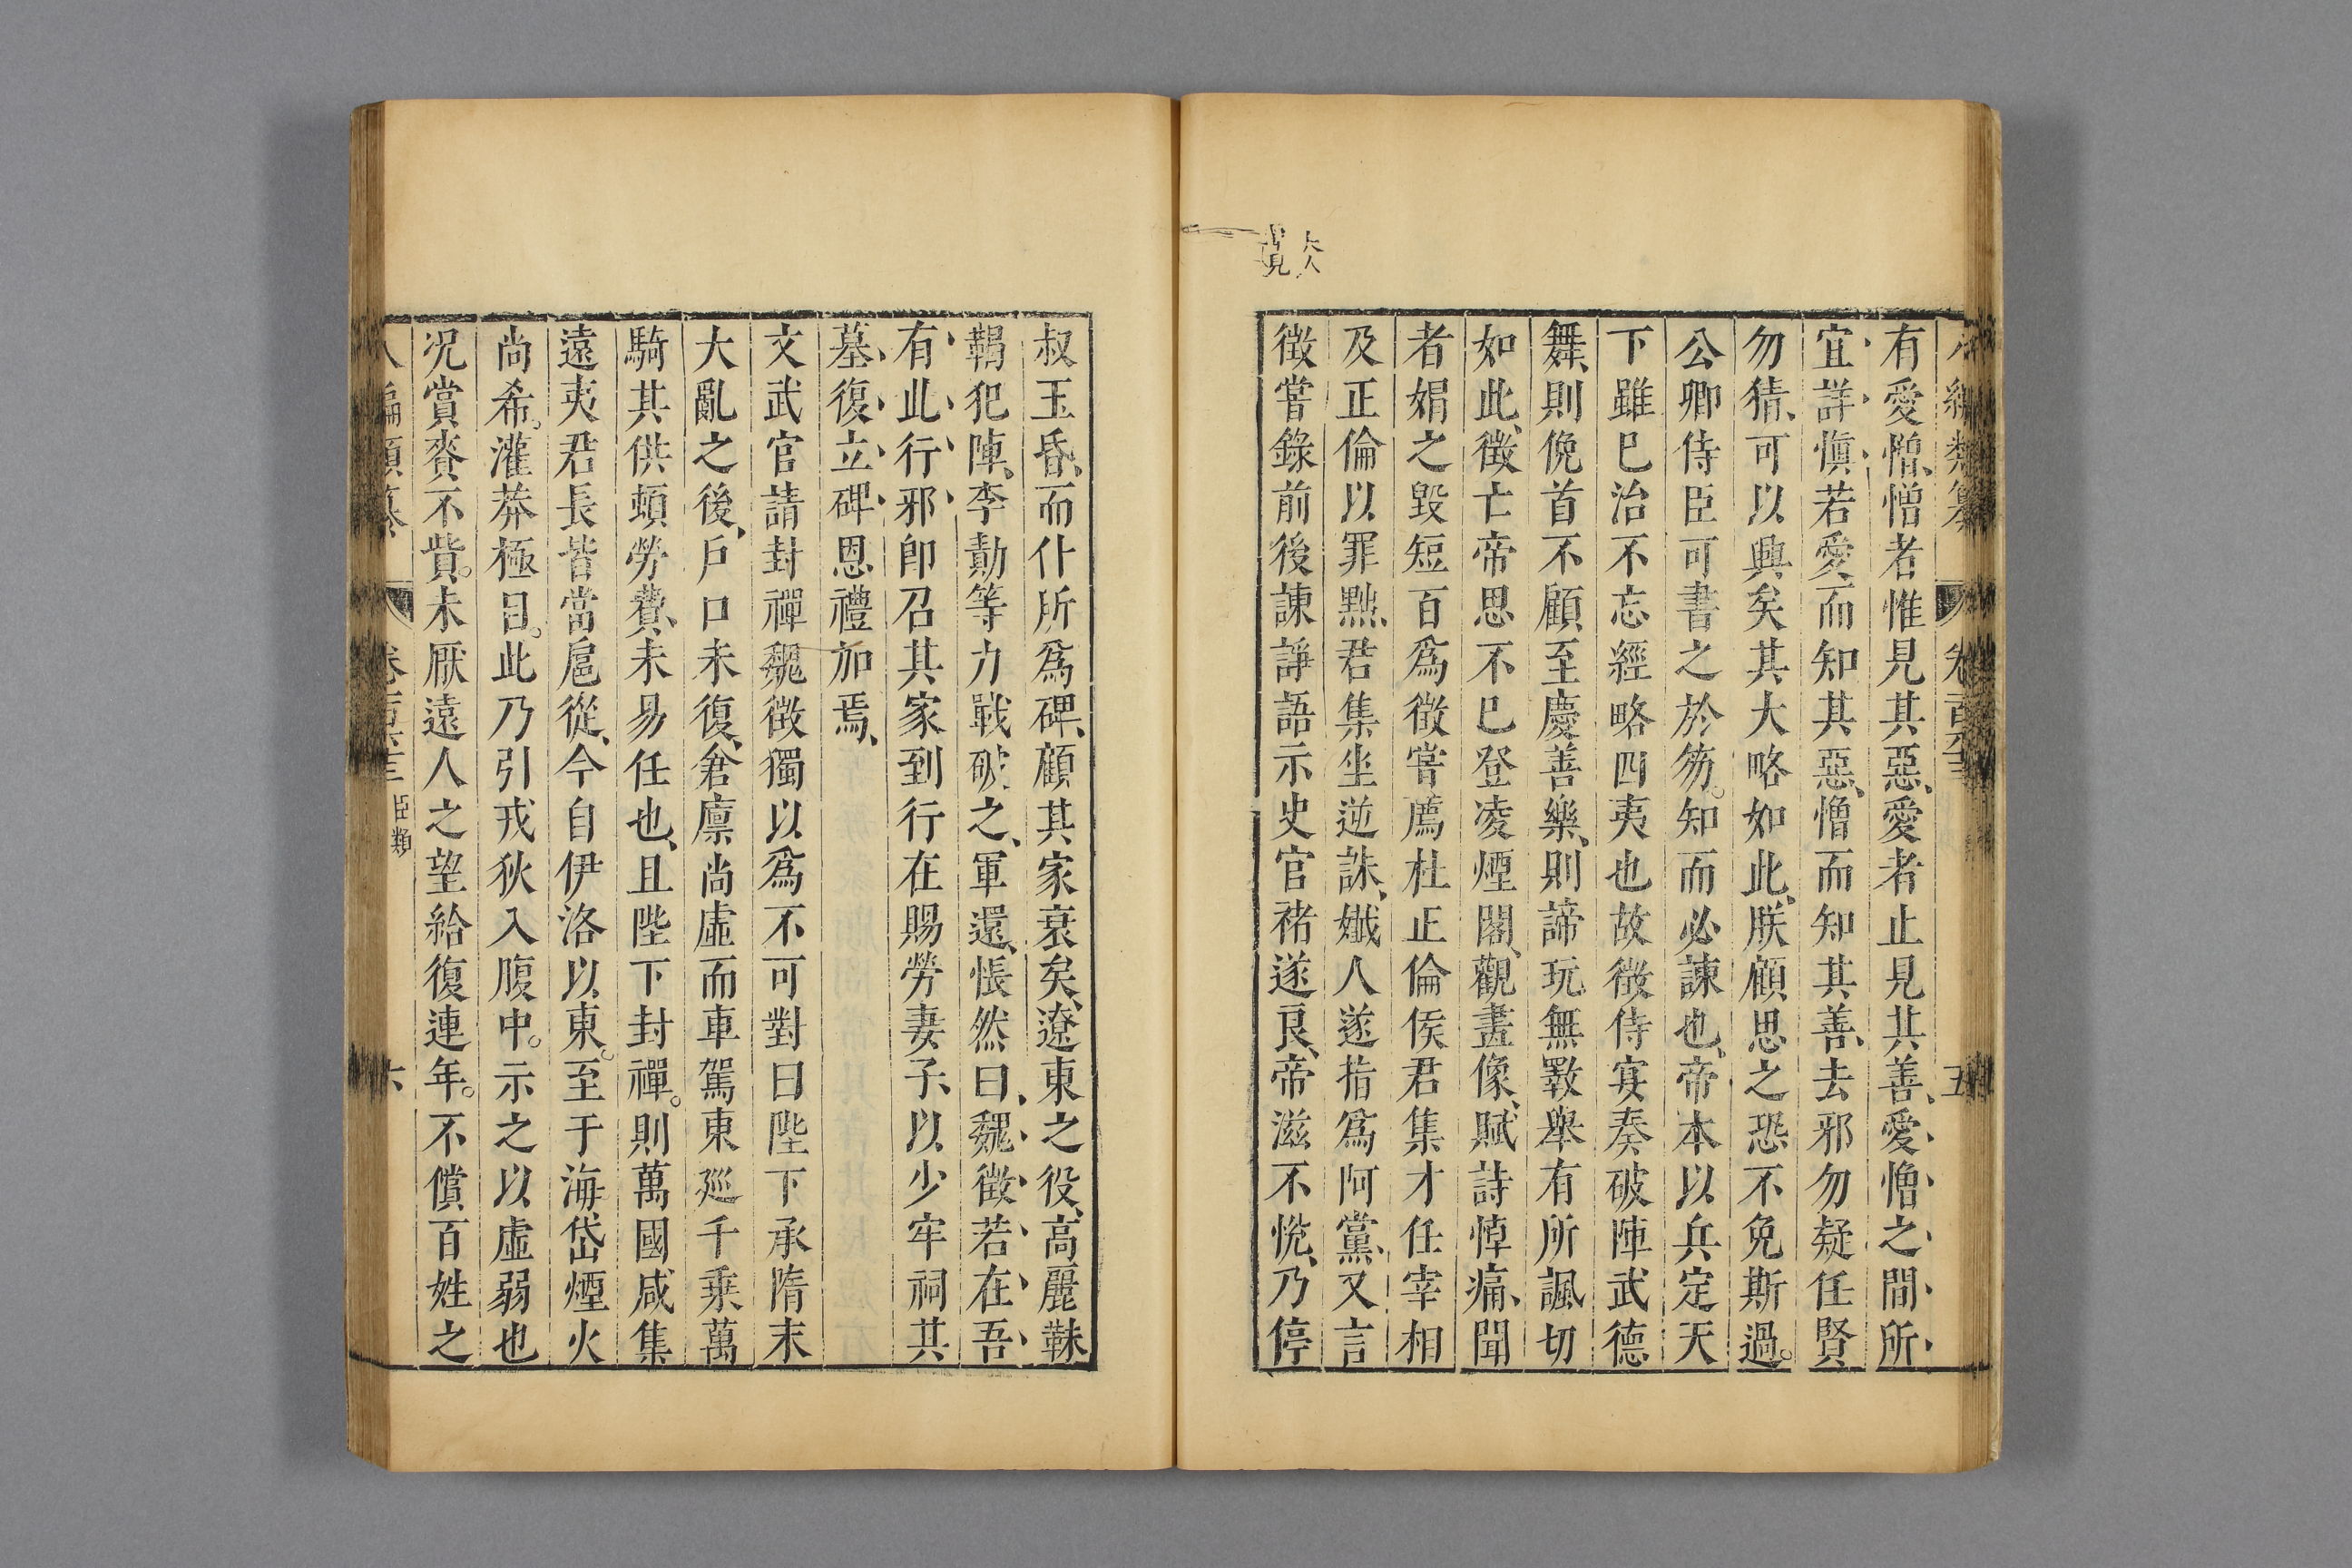 有愛憎憎者惟見其惡愛者止見其善愛憎之間所
宜詳慎若愛而知其惡憎而知其善去邪勿疑任賢
勿猜可以興矣其大略如此朕顧思之恐不免斯過
公卿侍臣可書之於笏知而必諫也帝本以兵定天
下雖已治不忘經略四夷也故徵侍宴奏破陣武德
舞則俛首不顧至慶善樂則諦玩無斁舉有所諷切
如此徵亡帝思不已登凌煙閣觀畫像賦詩悼痛聞
者媢之毀短百爲徵嘗薦杜正倫侯君集才任宰相
及正倫以罪黜君集坐逆誅孅人遂指爲阿黨又言
徵嘗錄前後諫諍語示史官褚遂良帝滋不悅乃停
叔玉昏而仆所爲碑顧其家衰矣遼東之役高麗靺
鞨犯陣李勣等力戰破之軍還悵然曰魏徵若在吾
有此行邪卽召其家到行在賜勞妻子以少牢祠其
墓復立碑恩禮加焉
文武官請封禪魏徵獨以爲不可對曰陛下承隋末
大亂之後戶口未復倉廪尚虛而車駕東巡千乗萬
騎其供頓勞費未易任也且陛下封禪則萬國咸集
遠夷君長皆當扈從今自伊洛以東至于海岱煙火
尚希灌莽極目此乃引戎狄入腹中示之以虛弱也
况賞賚不貲未厭遠人之望給復連年不償百姓之
臣類
六